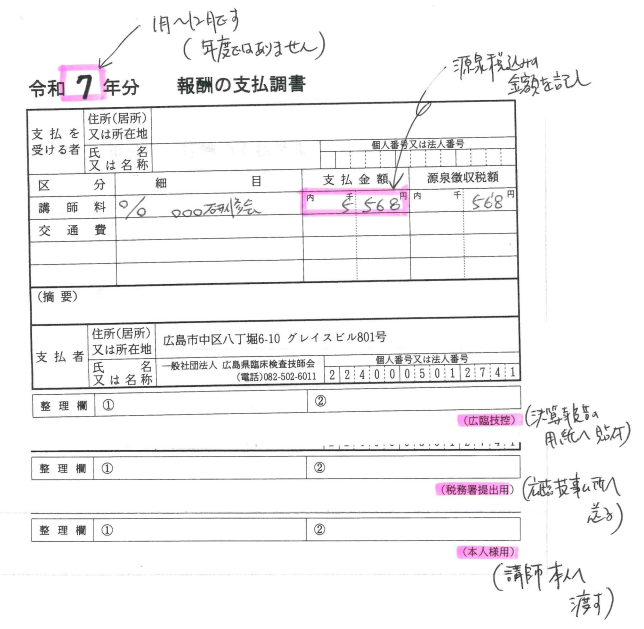 1月〜12月です
(年度ではありません)
令和 7 年分 報酬の支払調書
源泉税込みの
金額を記し
支払を
受ける者
住所(居所)
又は所在地
氏 名
又は名称
個人番号又は法人番号
区 分 細 目 支払金額 源泉徴収税額
講師料 % 〇〇〇研修会 内 千 円 5 568 内 千 円 568
交通費
(摘要)
支払者
住所(居所)
又は所在地
広島市中区八丁堀6-10 グレイスビル801号
氏 名
又は名称
一般社団法人 広島県臨床検査技師会
(電話)082-502-6011
個人番号又は法人番号
2240005012741
整理欄 ① ②
(広臨技控)
(決算報告の
用紙へ貼付)
整理欄 ① ②
(税務署提出用)
(広臨技事ム所へ
送る)
整理欄 ① ②
(本人様用)
(講師本人へ
渡す)